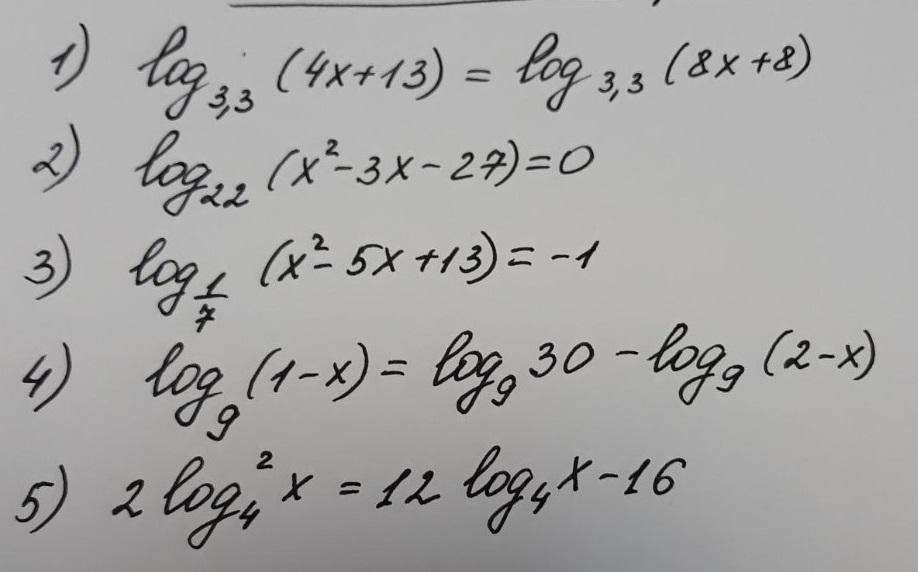 1) log₃,₃ (4x+13) = log₃,₃ (8x+8)
2) log₂₂ (x²-3x-27)=0
3) log_{1/7} (x²-5x+13)=-1
4) log₉(1-x)= log₉30 - log₉ (2-x)
5) 2 log₄² x = 12 log₄x-16